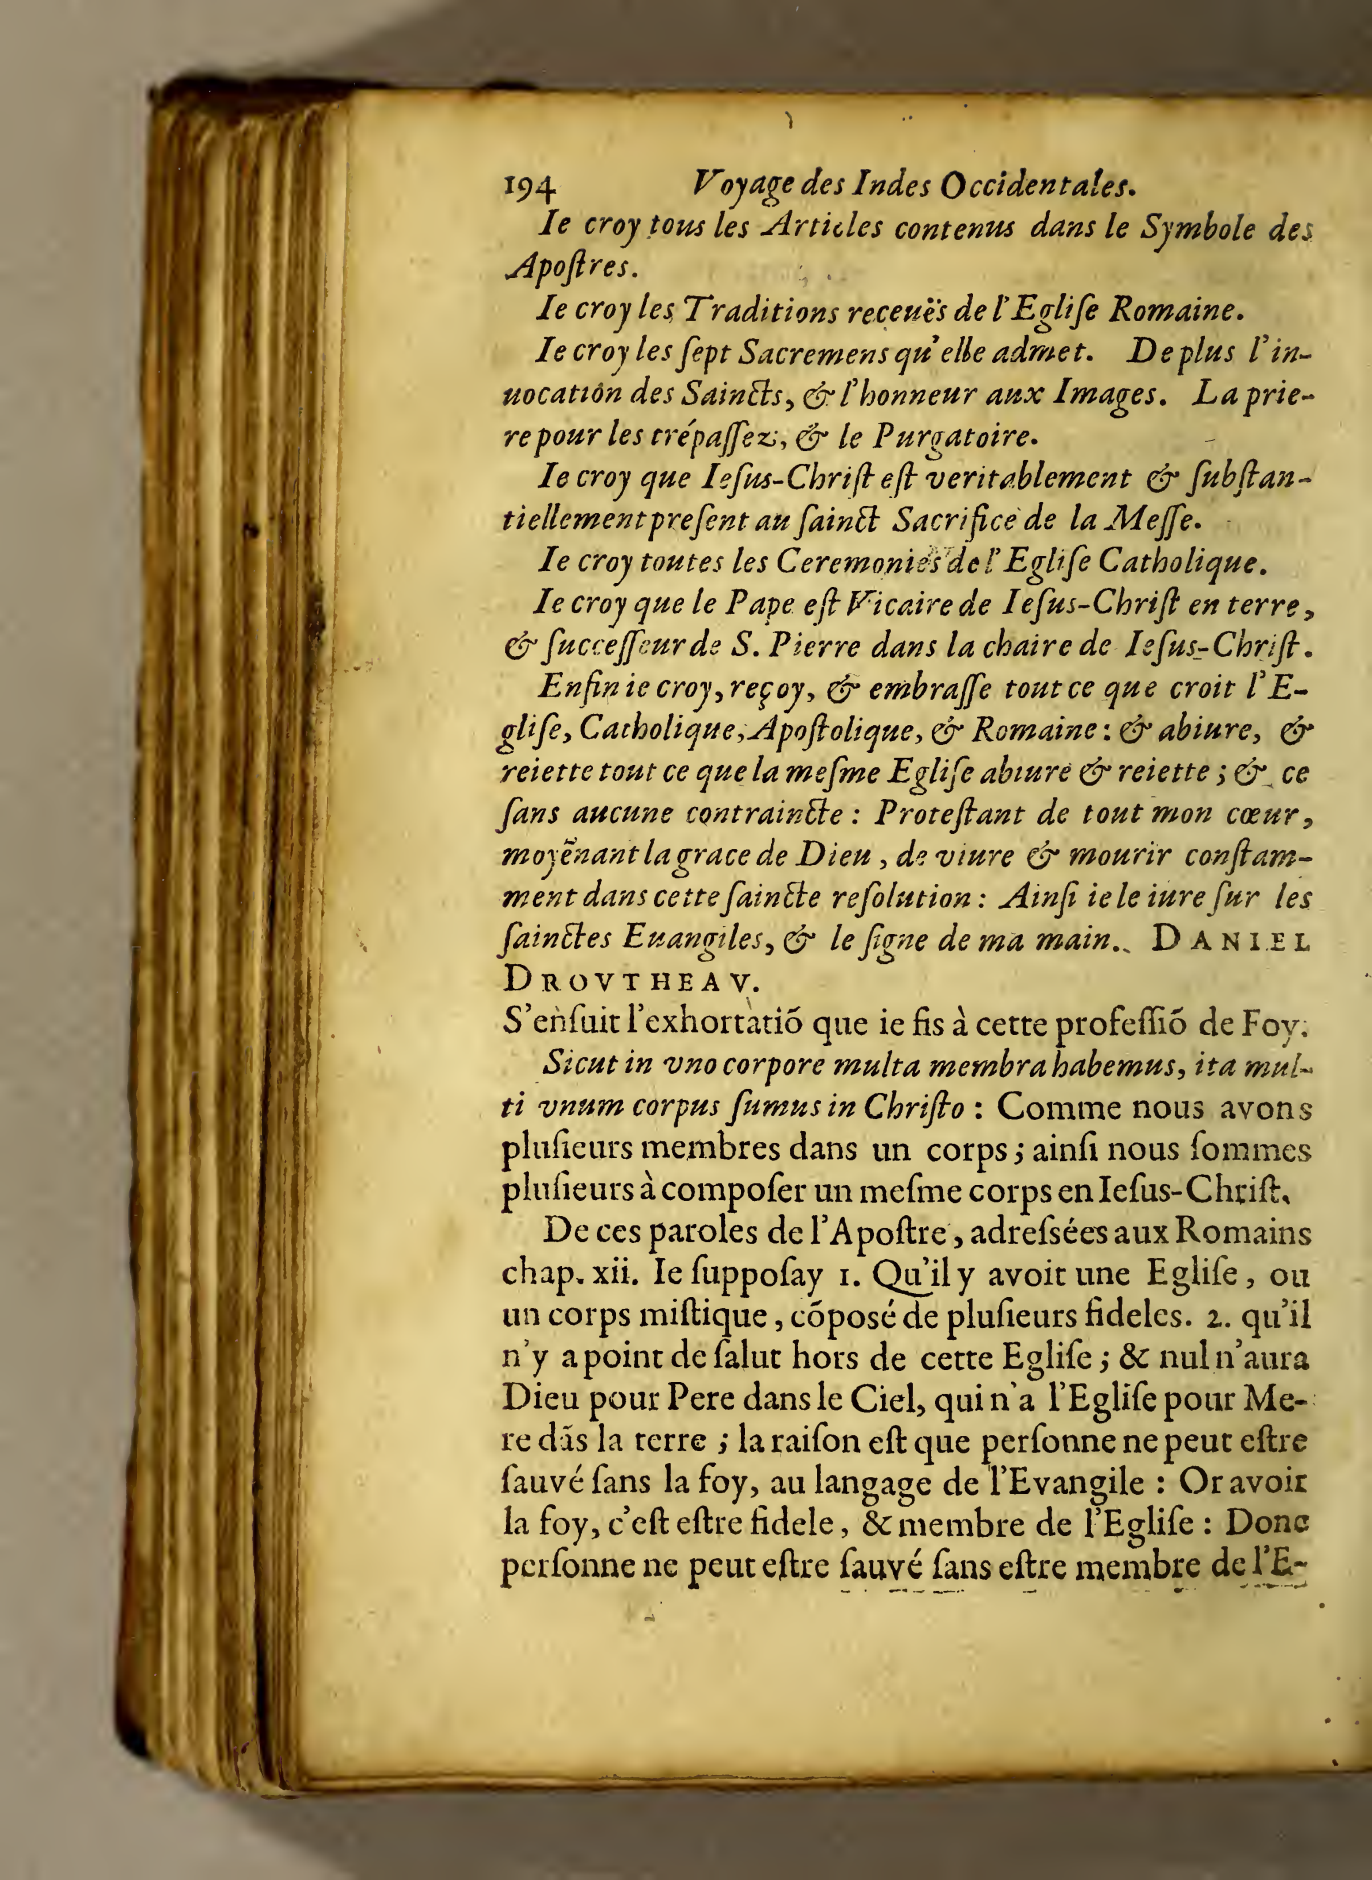 194 Voyage des Indes Occidentales.
Ie croy tous les Articles contenus dans le Symbole des
Apoſtres.
Ie croy les Traditions receuës de l'Egliſe Romaine.
Ie croy les ſept Sacremens qu'elle admet. De plus l'in-
uocation des Saincts, & l'honneur aux Images. La prie-
re pour les trépaſſez, & le Purgatoire.
Ie croy que Ieſus-Chriſt eſt veritablement & ſubſtan-
tiellement preſent au ſainct Sacrifice de la Meſſe.
Ie croy toutes les Ceremonies de l'Egliſe Catholique.
Ie croy que le Pape eſt Vicaire de Ieſus-Chriſt en terre,
& ſucceſſeur de S. Pierre dans la chaire de Ieſus-Chriſt.
Enfin ie croy, reçoy, & embraſſe tout ce que croit l'E-
gliſe, Catholique, Apoſtolique, & Romaine : & abiure, &
reiette tout ce que la meſme Egliſe abiure & reiette ; & ce
ſans aucune contraincte : Proteſtant de tout mon cœur,
moyēnant la grace de Dieu, de viure & mourir conſtam-
ment dans cette ſaincte reſolution : Ainſi ie le iure ſur les
ſainctes Euangiles, & le ſigne de ma main. DANIEL
DROVTHEAV.
S'enſuit l'exhortatiō que ie fis à cette profeſſiō de Foy.
Sicut in vno corpore multa membra habemus, ita mul-
ti vnum corpus ſumus in Chriſto : Comme nous avons
pluſieurs membres dans un corps ; ainſi nous ſommes
pluſieurs à compoſer un meſme corps en Ieſus-Chriſt.
De ces paroles de l'Apoſtre, adreſsées aux Romains
chap. xii. Ie ſuppoſay 1. Qu'il y avoit une Egliſe, ou
un corps miſtique, cōposé de pluſieurs fideles. 2. qu'il
n'y a point de ſalut hors de cette Egliſe ; & nul n'aura
Dieu pour Pere dans le Ciel, qui n'a l'Egliſe pour Me-
re dās la terre ; la raiſon eſt que perſonne ne peut eſtre
ſauvé ſans la foy, au langage de l'Evangile : Or avoir
la foy, c'eſt eſtre fidele, & membre de l'Egliſe : Donc
perſonne ne peut eſtre ſauvé ſans eſtre membre de l'E-